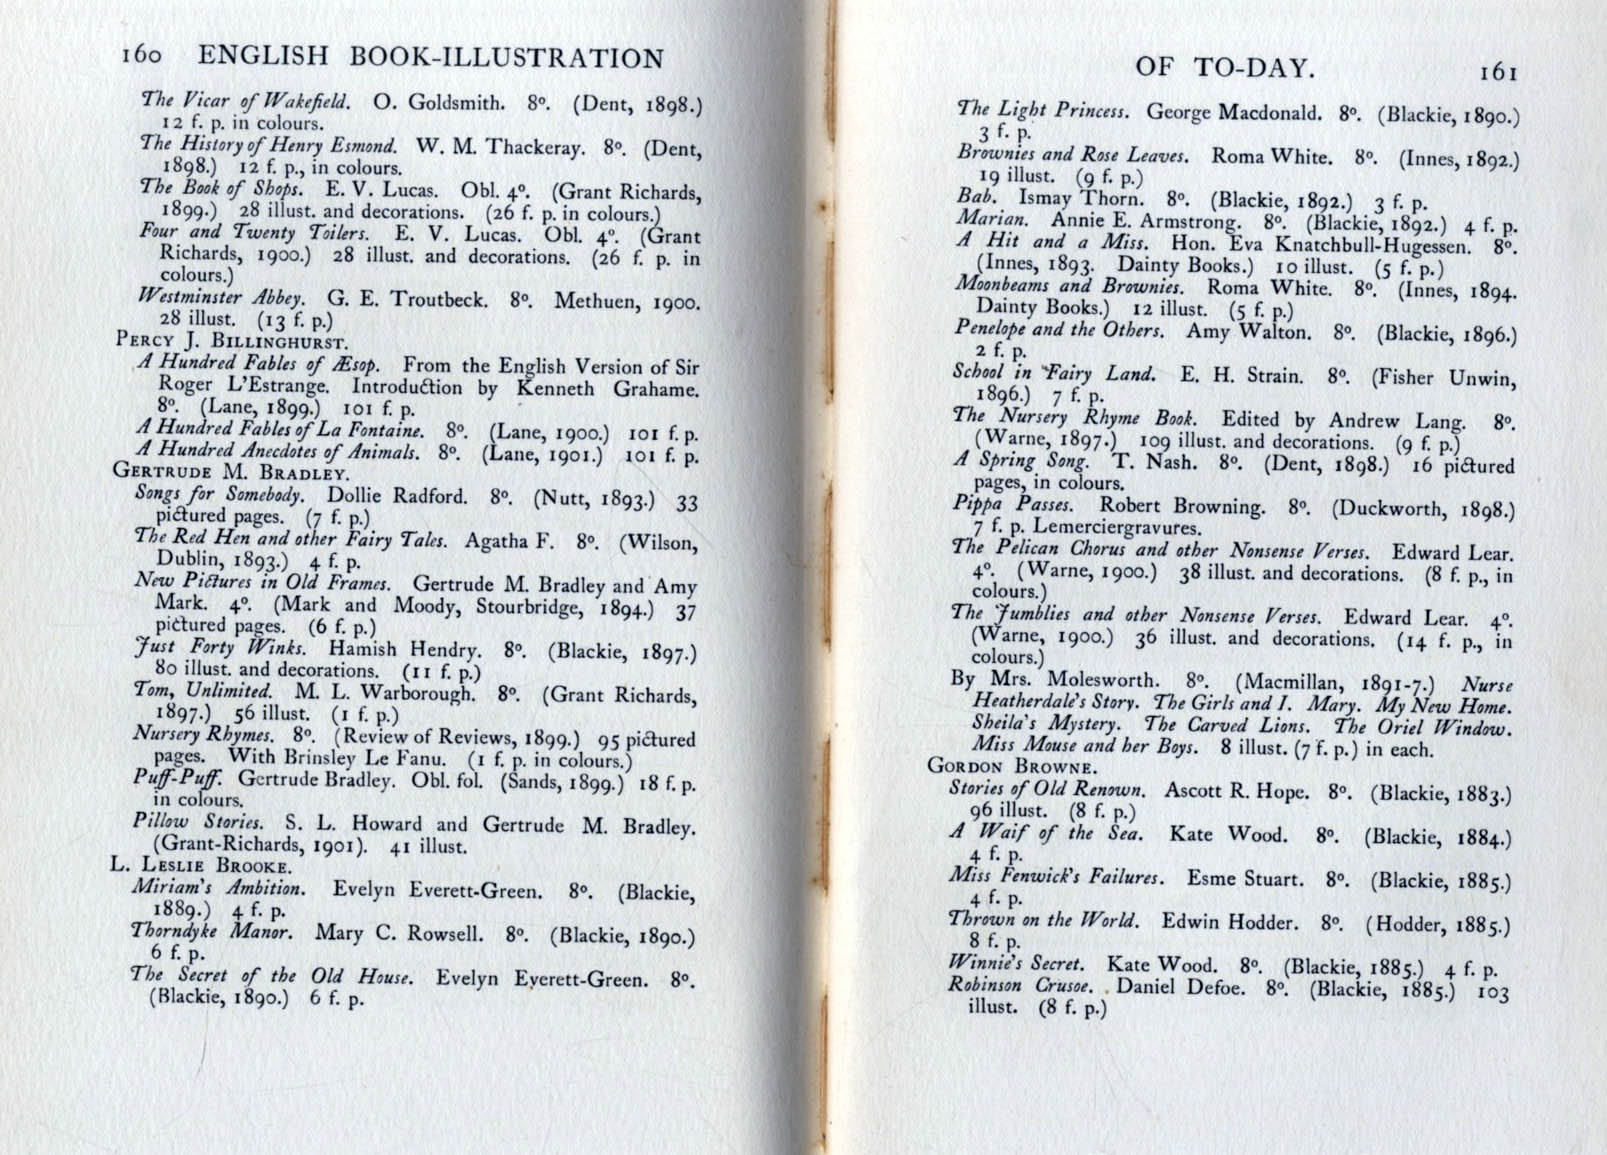 160 ENGLISH BOOK-ILLUSTRATION
The Vicar of Wakefield. O. Goldsmith. 8º. (Dent, 1898.)
12 f. p. in colours.
The History of Henry Esmond. W. M. Thackeray. 8º. (Dent,
1898.) 12 f. p., in colours.
The Book of Shops. E. V. Lucas. Obl. 4º. (Grant Richards,
1899.) 28 illust. and decorations. (26 f. p. in colours.)
Four and Twenty Toilers. E. V. Lucas. Obl. 4º. (Grant
Richards, 1900.) 28 illust. and decorations. (26 f. p. in
colours.)
Westminster Abbey. G. E. Troutbeck. 8º. Methuen, 1900.
28 illust. (13 f. p.)
PERCY J. BILLINGHURST.
A Hundred Fables of Æsop. From the English Version of Sir
Roger L'Estrange. Introduction by Kenneth Grahame.
8º. (Lane, 1899.) 101 f. p.
A Hundred Fables of La Fontaine. 8º. (Lane, 1900.) 101 f. p.
A Hundred Anecdotes of Animals. 8º. (Lane, 1901.) 101 f. p.
GERTRUDE M. BRADLEY.
Songs for Somebody. Dollie Radford. 8º. (Nutt, 1893.) 33
pictured pages. (7 f. p.)
The Red Hen and other Fairy Tales. Agatha F. 8º. (Wilson,
Dublin, 1893.) 4 f. p.
New Pictures in Old Frames. Gertrude M. Bradley and Amy
Mark. 4º. (Mark and Moody, Stourbridge, 1894.) 37
pictured pages. (6 f. p.)
Just Forty Winks. Hamish Hendry. 8º. (Blackie, 1897.)
80 illust. and decorations. (11 f. p.)
Tom, Unlimited. M. L. Warborough. 8º. (Grant Richards,
1897.) 56 illust. (1 f. p.)
Nursery Rhymes. 8º. (Review of Reviews, 1899.) 95 pictured
pages. With Brinsley Le Fanu. (1 f. p. in colours.)
Puff-Puff. Gertrude Bradley. Obl. fol. (Sands, 1899.) 18 f. p.
in colours.
Pillow Stories. S. L. Howard and Gertrude M. Bradley.
(Grant-Richards, 1901). 41 illust.
L. LESLIE BROOKE.
Miriam's Ambition. Evelyn Everett-Green. 8º. (Blackie,
1889.) 4 f. p.
Thorndyke Manor. Mary C. Rowsell. 8º. (Blackie, 1890.)
6 f. p.
The Secret of the Old House. Evelyn Everett-Green. 8º.
(Blackie, 1890.) 6 f. p.
OF TO-DAY. 161
The Light Princess. George Macdonald. 8º. (Blackie, 1890.)
3 f. p.
Brownies and Rose Leaves. Roma White. 8º. (Innes, 1892.)
19 illust. (9 f. p.)
Bab. Ismay Thorn. 8º. (Blackie, 1892.) 3 f. p.
Marian. Annie E. Armstrong. 8º. (Blackie, 1892.) 4 f. p.
A Hit and a Miss. Hon. Eva Knatchbull-Hugessen. 8º.
(Innes, 1893. Dainty Books.) 10 illust. (5 f. p.)
Moonbeams and Brownies. Roma White. 8º. (Innes, 1894.
Dainty Books.) 12 illust. (5 f. p.)
Penelope and the Others. Amy Walton. 8º. (Blackie, 1896.)
2 f. p.
School in Fairy Land. E. H. Strain. 8º. (Fisher Unwin,
1896.) 7 f. p.
The Nursery Rhyme Book. Edited by Andrew Lang. 8º.
(Warne, 1897.) 109 illust. and decorations. (9 f. p.)
A Spring Song. T. Nash. 8º. (Dent, 1898.) 16 pictured
pages, in colours.
Pippa Passes. Robert Browning. 8º. (Duckworth, 1898.)
7 f. p. Lemerciergravures.
The Pelican Chorus and other Nonsense Verses. Edward Lear.
4º. (Warne, 1900.) 38 illust. and decorations. (8 f. p., in
colours.)
The Jumblies and other Nonsense Verses. Edward Lear. 4º.
(Warne, 1900.) 36 illust. and decorations. (14 f. p., in
colours.)
By Mrs. Molesworth. 8º. (Macmillan, 1891-7.) Nurse
Heatherdale's Story. The Girls and I. Mary. My New Home.
Sheila's Mystery. The Carved Lions. The Oriel Window.
Miss Mouse and her Boys. 8 illust. (7 f. p.) in each.
GORDON BROWNE.
Stories of Old Renown. Ascott R. Hope. 8º. (Blackie, 1883.)
96 illust. (8 f. p.)
A Waif of the Sea. Kate Wood. 8º. (Blackie, 1884.)
4 f. p.
Miss Fenwick's Failures. Esme Stuart. 8º. (Blackie, 1885.)
4 f. p.
Thrown on the World. Edwin Hodder. 8º. (Hodder, 1885.)
8 f. p.
Winnie's Secret. Kate Wood. 8º. (Blackie, 1885.) 4 f. p.
Robinson Crusoe. Daniel Defoe. 8º. (Blackie, 1885.) 103
illust. (8 f. p.)